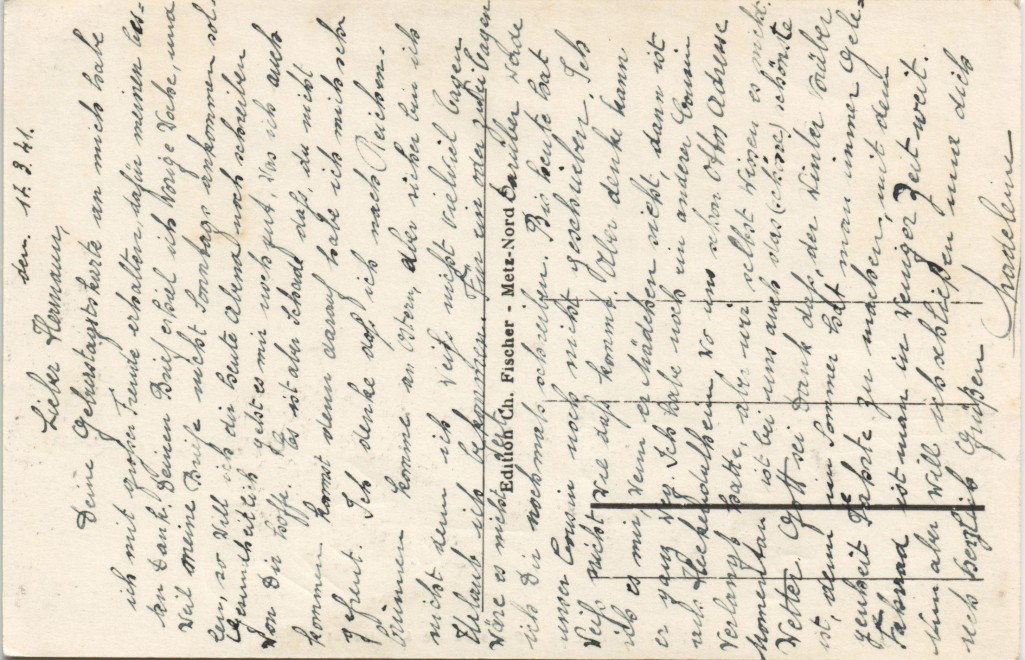 den. 17. 3. 41.
Lieber Hermann,
Deine Geburtstagskarte an mich habe
ich mit großer Freude erhalten dafür meinen bes-
ten Dank. Deinen Brief erhiel ich Vorige Woche, und
weil meine Briefe nicht Sonntags ankommen sol-
len, so will ich dir heute abend noch schreiben
Gesundheitlich geht es mir noch gut, Was ich auch
von Dir hoffe. Es ist aber Schade daß, du nicht
kommen kannst denn darauf habe ich mich sehr
gefreut. Ich denke daß ich nach Reichen-
brunnen komme an Ostern, aber sicher bin ich
nicht denn ich weiß nicht wieviel Tagen
Urlaub ich bekommen. Für ein oder zwei Tagen
wäre es nicht der Werde
ich Dir nochmals schreiben. Bis heute hat
unser Cousin noch nicht geschrieben. Ich
Weiß nicht wie das kommt. Aber denke kann
ich es mir, Wenn er Mädchen sieht, dann ist
er ganz weg. Ich habe noch ein anderer Cousin
aus Heckendalheim, wo uns schon Otto Adresse
Verlangt hatte aber wir selbst wissen es nicht.
Momentan ist bei uns auch das (schöne) schönste
Wetter Gott sei Dank daß, der Winter vorüber
ist, denn im Sommer hat man immer Gele-
genheit Fahrte zu machen, mit dem
Fahrrad ist man in weniger Zeit weit.
Nun aber will ich schließen und dich
recht herzlich Grüßen
Madelein
Edition Ch. Fischer - Metz-Nord